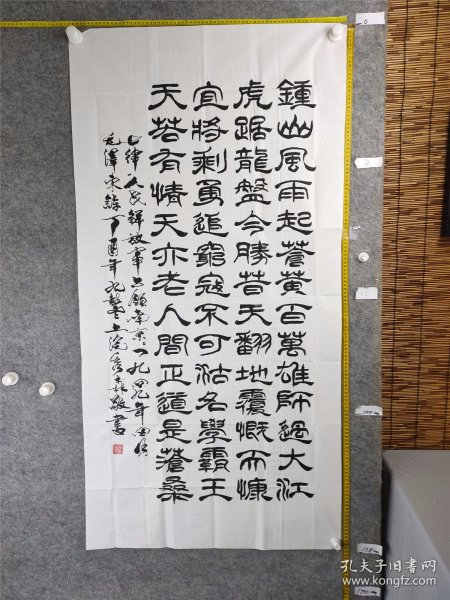 鍾山風雨起蒼黃百萬雄師過大江
虎踞龍盤今勝昔天翻地覆慨而慷
宜將剩勇追窮寇不可沽名學霸王
天若有情天亦老人間正道是滄桑
七律人民解放軍占領南京一九四九年四月
毛澤東詩丁酉年上浣敬書
0
100cm
150cm
孔夫子旧书网
www.kongfz.com